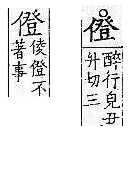 僜
醉行皃丑
升切三
僜
倰僜不
著事